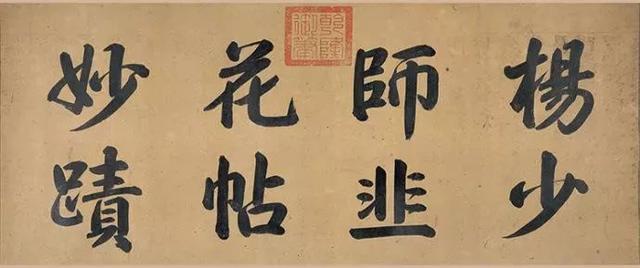 楊少
師韭
花帖
妙蹟
乾隆
御筆